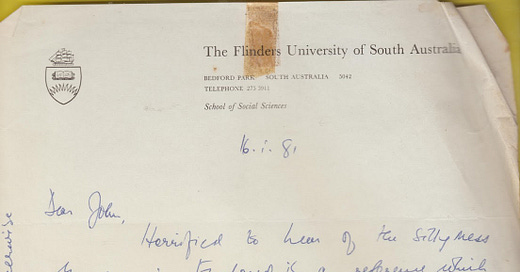 The Flinders University of South Australia
BEDFORD PARK SOUTH AUSTRALIA 5042
TELEPHONE 275 3911
School of Social Sciences
16. i. 81
Dear John,
Horrified to hear of the sillyness
is a reference which